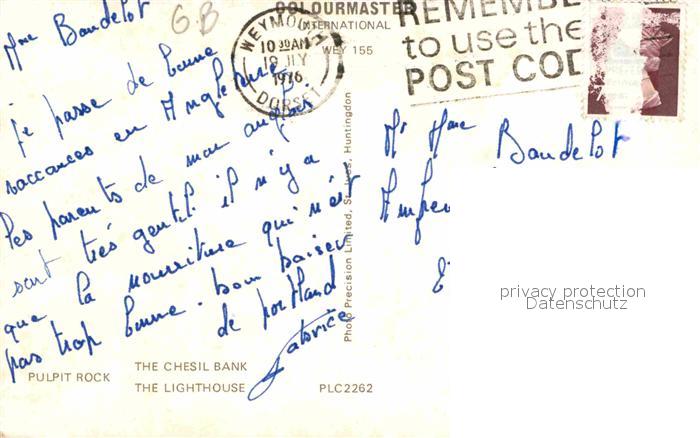 GB
COLOURMASTER
INTERNATIONAL
WEY 155
WEYMOUTH
10 30AM
19 JLY
1976
DORSET
REMEMBE
to use the
POST COD
Mme Baudelot
je passe de bonne
vaccances en Angleterre
les parents de mon anglais
sont très gentil il n'y a
que la nourriture qui n'est
pas trop bonne. bon baiser
de portland
Fabrice
Mr Mme Baudelot
privacy protection
Datenschutz
Photo Precision Limited, St. Ives, Huntingdon
PULPIT ROCK
THE CHESIL BANK
THE LIGHTHOUSE
PLC2262